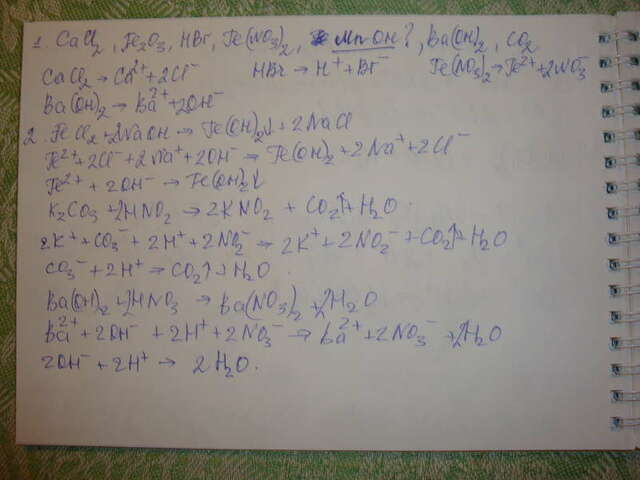 1. CaCl2, Fe2O3, HBr, Fe(NO3)2, MnOH?, Ba(OH)2, CO2
CaCl2 → Ca2+ + 2Cl- HBr → H+ + Br- Fe(NO3)2 → Fe2+ + 2NO3-
Ba(OH)2 → Ba2+ + 2OH-
2. FeCl2 + 2NaOH → Fe(OH)2↓ + 2NaCl
Fe2+ + 2Cl- + 2Na+ + 2OH- → Fe(OH)2 + 2Na+ + 2Cl-
Fe2+ + 2OH- → Fe(OH)2↓
K2CO3 + 2HNO2 → 2KNO2 + CO2↑ + H2O
2K+ + CO3- + 2H+ + 2NO2- → 2K+ + 2NO2- + CO2↑ + H2O
CO3- + 2H+ → CO2↑ + H2O.
Ba(OH)2 + 2HNO3 → Ba(NO3)2 + 2H2O
Ba2+ + 2OH- + 2H+ + 2NO3- → Ba2+ + 2NO3- + 2H2O
2OH- + 2H+ → 2H2O.